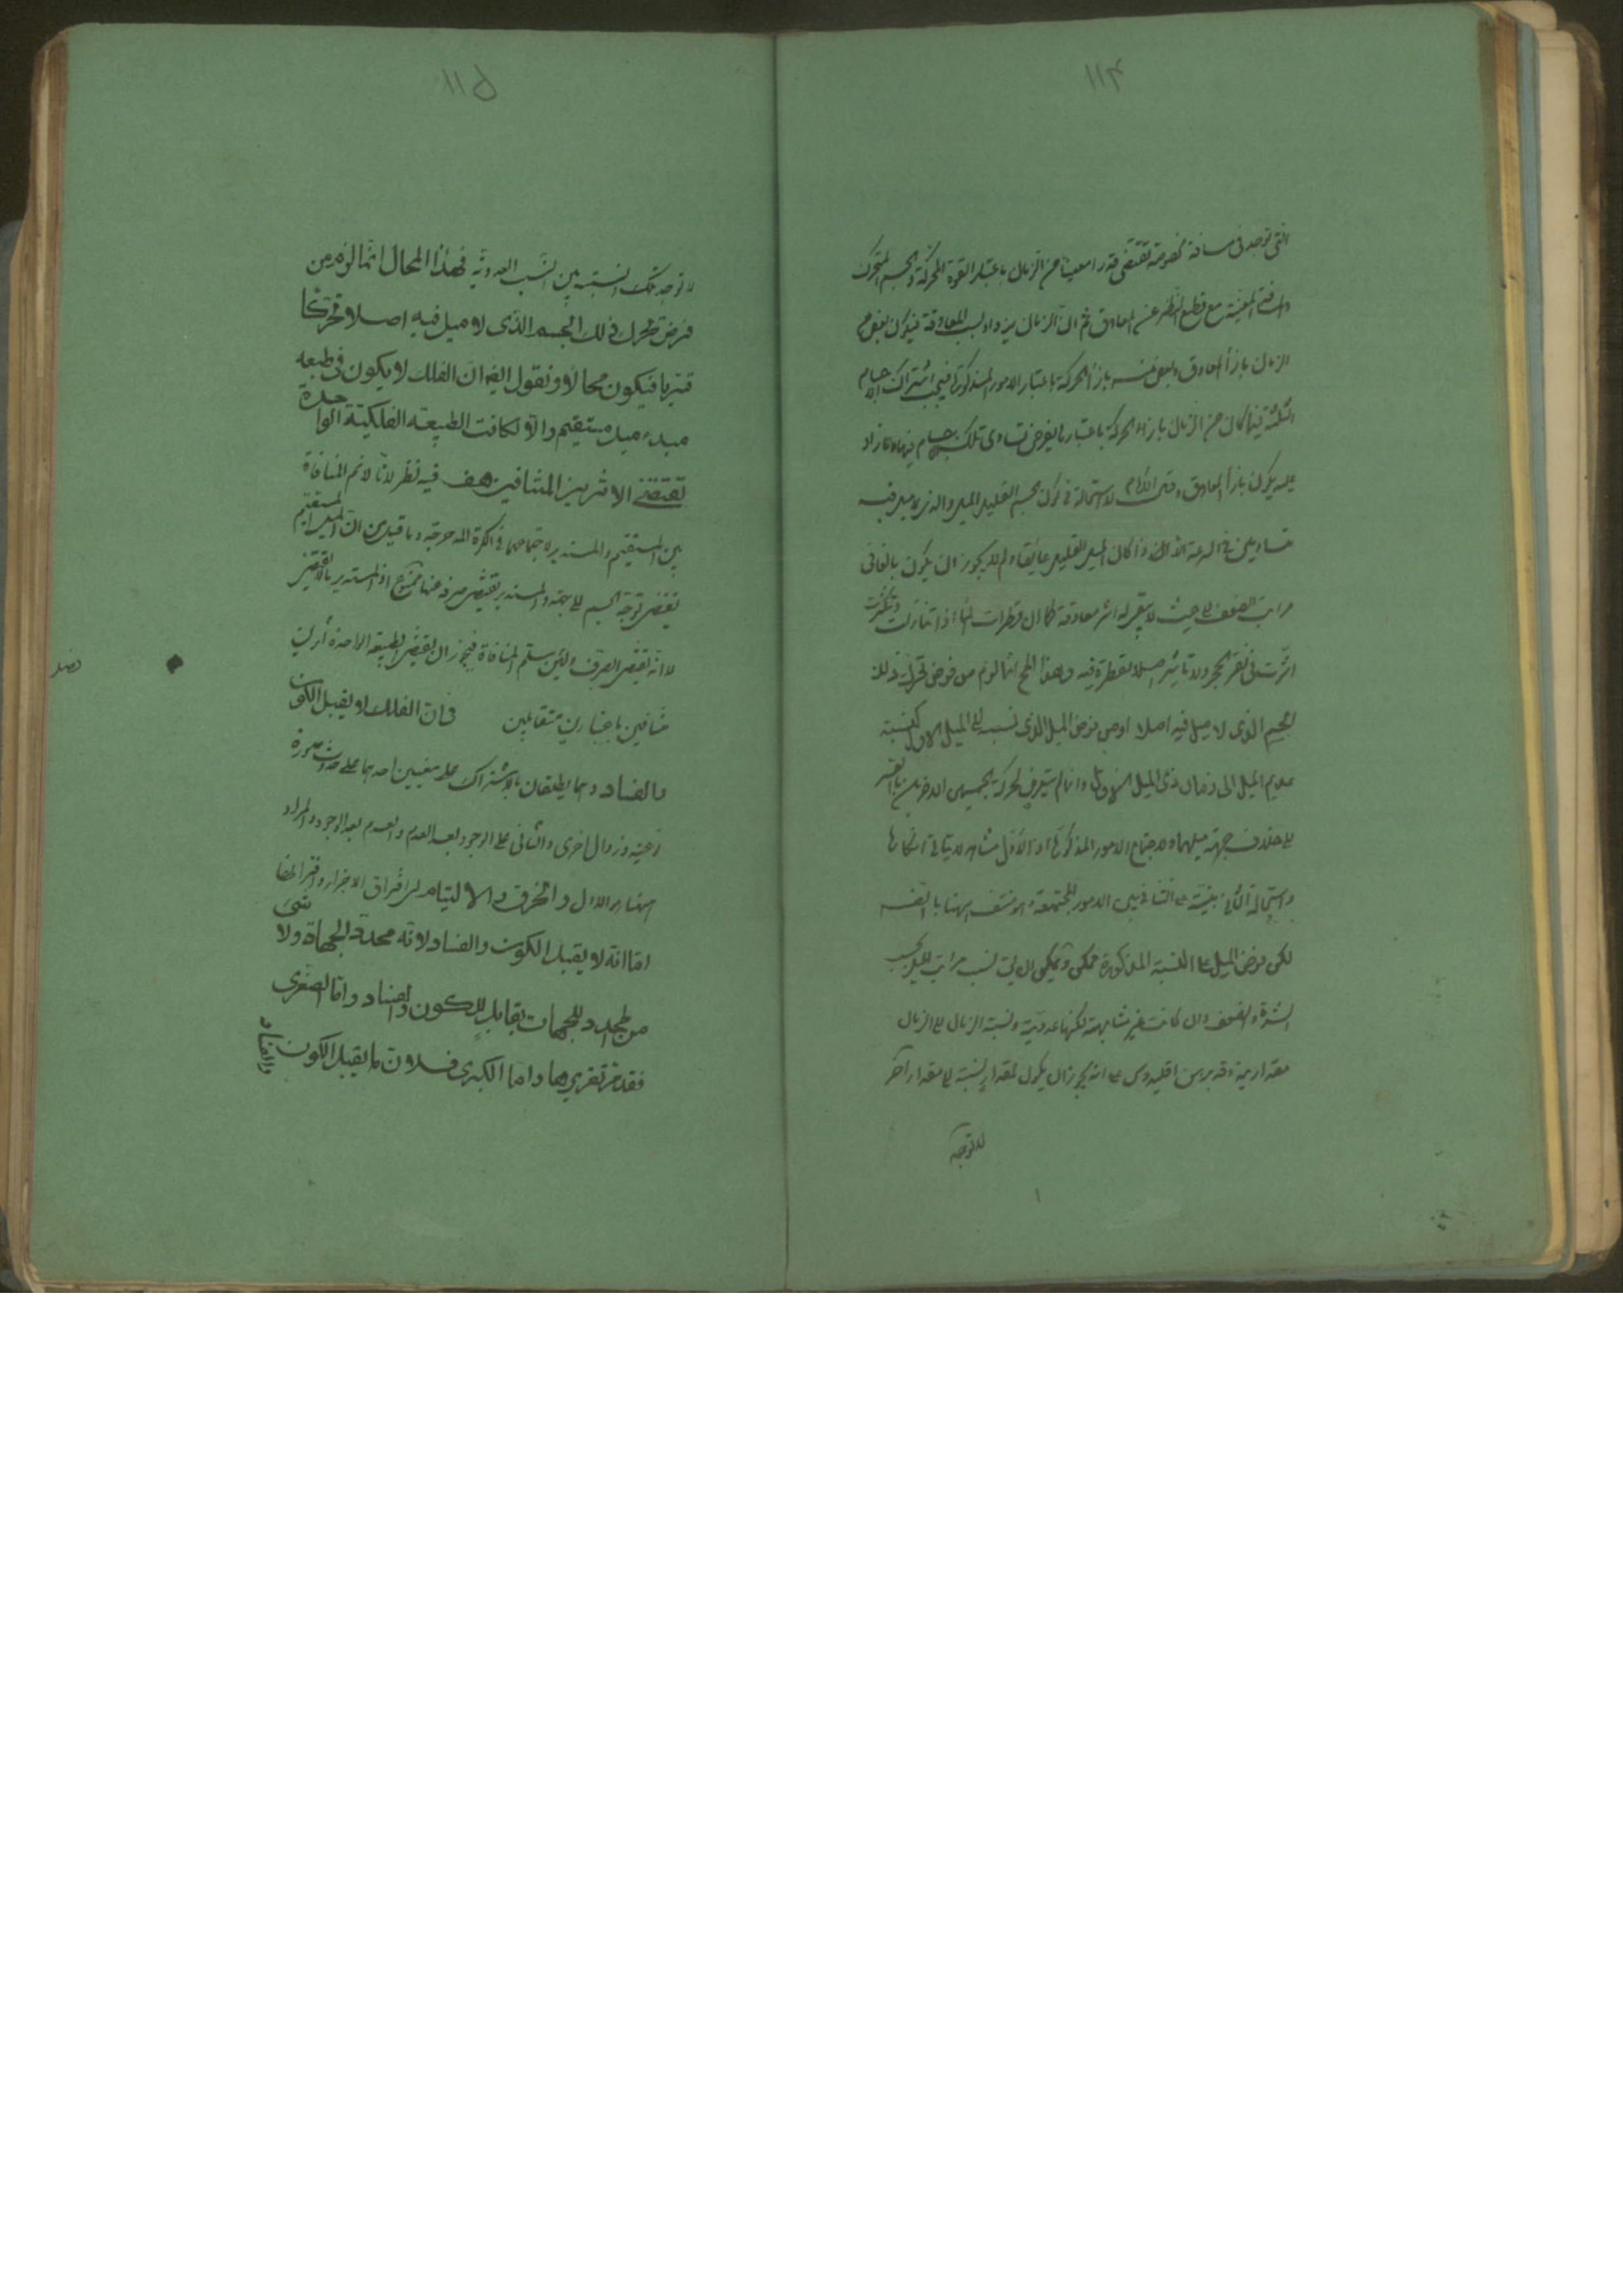 التى توجد فى مسافة مخصوصة تقتضى قدرا معينا من الزمان باعتبار القوة المحركة والجسم المتحرك
والمسافة المعينة مع قطع النظر عن المعاوق ثم ان الزمان يزداد بسبب المعاوقة فيكون بعض من
الزمان بازاء المعاوق وبعض منه بازاء الحركة باعتبار الامور المذكورة فيجب اشتراك الاجسام
الثلثة فيما كان من الزمان بازاء الحركة باعتبار ما يفرض تساوى تلك الاجسام فيها وما زاد
عليه يكون بازاء المعاوق لاستحالة فى كون الجسم القليل الميل والذى لا ميل فيه
متساويين فى السرعة الا اذا كان الميل القليل عائقا ولم لا يجوز ان يكون بالغا فى
مراتب الضعف الى حيث لا يبقى له اثر معاوقة كما ان قطرات الماء اذا تنازلت وتكثرت
اثرت فى نقر الحجر ولا تاثير اصلا لقطرة فيه وهذا المح انما لزم من فرض تحرك ذلك
الجسم الذى لا ميل فيه اصلا او من فرض الميل الذى نسبته الى الميل الاول كنسبة
عديم الميل الى زمان ذى الميل الاول وانما لم يتعرض لحركة الجسمين الاخرين بالقسر
الى خلاف جهة ميلهما ولاجتماع الامور المذكورة اذ الاول مشاهد لا يتاتى انكارها
واستحالة الثانى مبنية على التنافى بين الامور المجتمعة وهو منتف ههنا
لكن فرض الميل على النسبة المذكورة ممكن ويمكن ان يق نسب مراتب الميل بحسب
الشدة والضعف وان كانت غير متناهية لكنها عددية ونسبة الزمان الى الزمان
مقدارية وقد برهن اقليدس على انه يجوز ان يكون لمقدار نسبة الى مقدار آخر
لا توجد
لا توجد تلك النسبة بين النسب العددية فهذا المحال انما لزم من
فرض تحرك ذلك الجسم الذى لا ميل فيه اصلا وتحركا
قسريا فيكون محالا ونقول ايضه ان الفلك لا يكون فى طبعه
مبدء ميل مستقيم والا لكانت الطبيعة الفلكية الواحدة
تقتضى الاثرين المتنافيين هف فيه نظر لانا لا نم المنافاة
بين المستقيم والمستدير لاجتماعهما فى الكرة المدحرجة وما قيل من ان الميل المستقيم
يقتضى توجه الجسم الى جهة والمستدير يقتضى صرفه عنها ممنوع اذ المستدير لا يقتضى
لا انه يقتضى الصرف ولئن سلم المنافاة فيجوز ان يقتضى الطبيعة الواحدة امرين
متنافيين باعتبارين متقابلين فى ان الفلك لا يقبل الكون
فصل
والفساد وهما يطلقان بالاشتراك على معنيين احدهما على حدوث صورة
نوعية وزوال اخرى والثانى على الوجود بعد العدم والعدم بعد الوجود والمراد
ههنا هو الاول والخرق والالتيام اى افتراق الاجزاء واقترانها
اما انه لا يقبل الكون والفساد لانه محدد الجهات ولا شىء
من المحدد للجهات بقابل للكون والفساد واما الصغرى
فقد مر تقريرها واما الكبرى فلان ما يقبل الكون والفساد